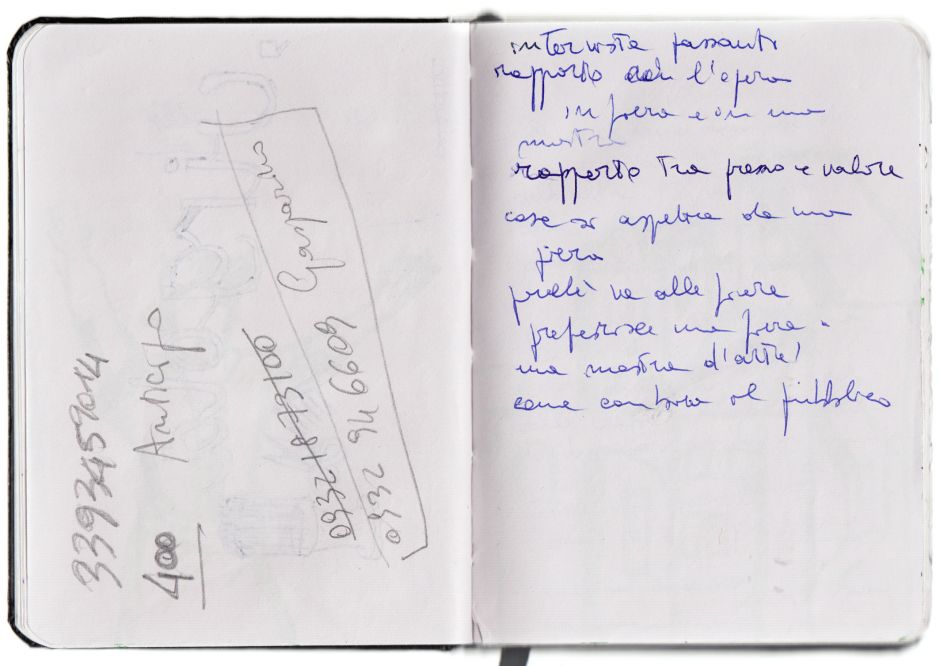 3393459014
400 Anticipo
0932 1873100
0332 946609 Gasparino
interviste passanti
rapporto con l'opera
in fiera e in una
mostra
rapporto tra prezzo e valore
cosa si aspetta da una
fiera
perché va alle fiere
preferisce una fiera o
una mostra d'arte
come cambia il pubblico